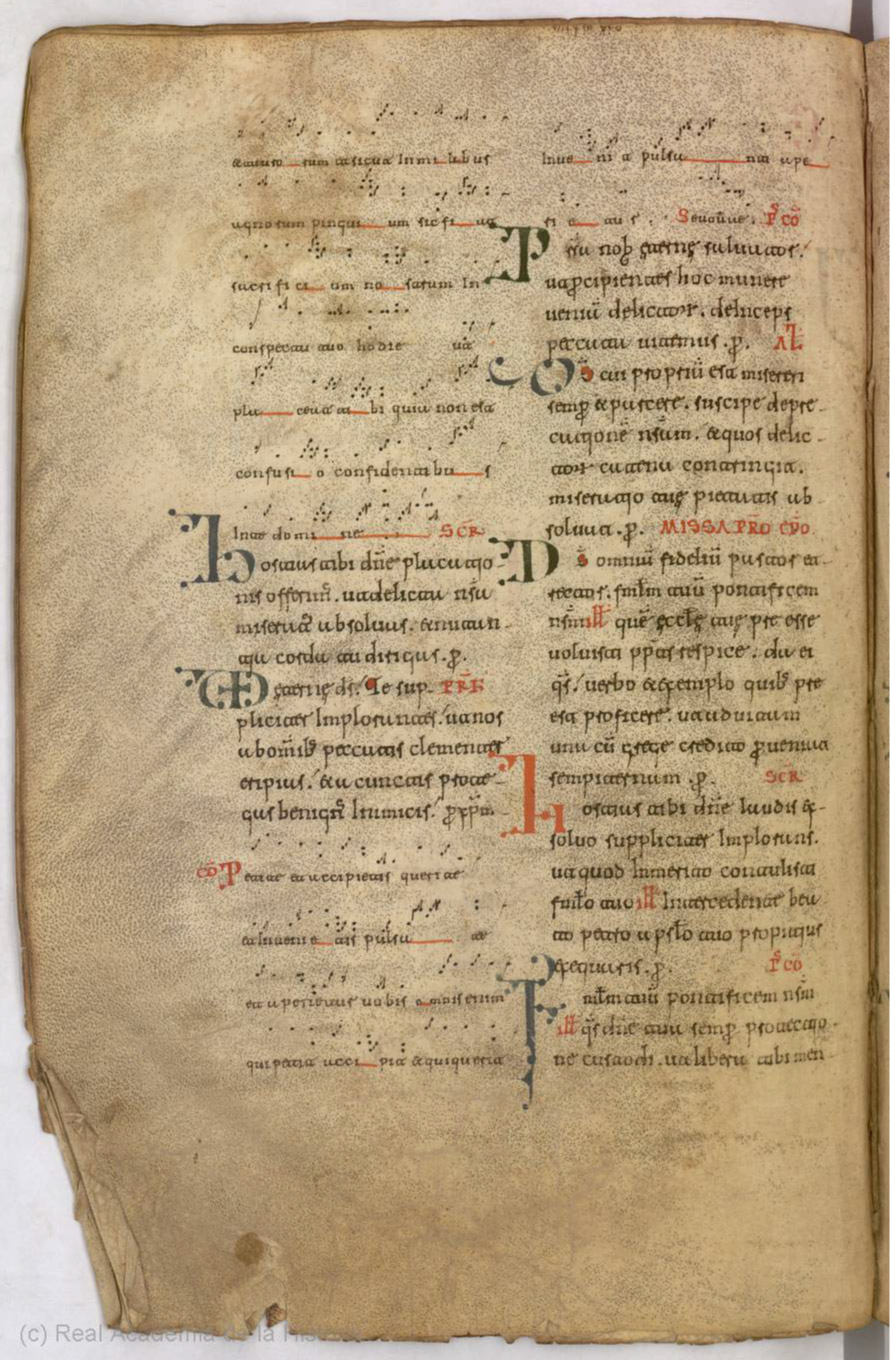 & tauro rum et sicut In milibus
agnorum pingui um sic fi at
sacrifici um no strum In
conspectu tuo hodie ut
pla ceat ti bi quia non est
confusi o confidentibu s
In te domi ne SCR
Hostias tibi dñe placatio
nis offerim. ut delicta nr̃a
miserat' absoluas. & nutan
tia corda tu dirigas. p̱.
Eterne ds̃. Te sup PRF
pliciter Implorantes. ut nos
ab omib; peccatis clementer
eripias. & a cunctis protę
gas benign' Inimicis. p̱ xp̃m.
CO Petite et accipietis querite
et Inueni e tis pulsa te
et aperietur uobis omnis enim
qui petit acci pit & qui querit
Inue ni t pulsa nti ape
ri e tur. Seuouae. P̃ CO
Presta nob̃ eternę saluator.
ut p̱cipientes hoc munere
ueniā delictor'. deinceps
peccata uitemus. p̱. AL̃
Ds̃ cui propriū est misereri
semp̱ & parcere. suscipe depre
cationē nr̃am. & quos delic
tor' catena constringit.
miseratio tuę pietatis ab
soluat. p̱. MISSA PRO EP̃O
Ds̃ omniū fideliū pastor et
rector. famlm̃ tuū pontificem
nr̃m ill̃ quē ęcclę tuę pre esse
uoluisti pp̃itus respice. da ei
qs̃. uerbo & exemplo quib; pre
est proficere. ut ad uitam
una cū grege credito p̱ueniat
sempiternum. p̱. SCR
Hostias tibi dñe laudis ex
soluo suppliciter Implorans.
ut quod Inmerito contulisti
famlo tuo ill̃ Intercedente bea
to petro apl̃o tuo propitius
exequaris. p̱. P̃ CO
Famlm̃ tuū pontificem nr̃m
ill̃ qs̃ dñe tua semp̱ protectio
ne custodi. ut libera tibi men